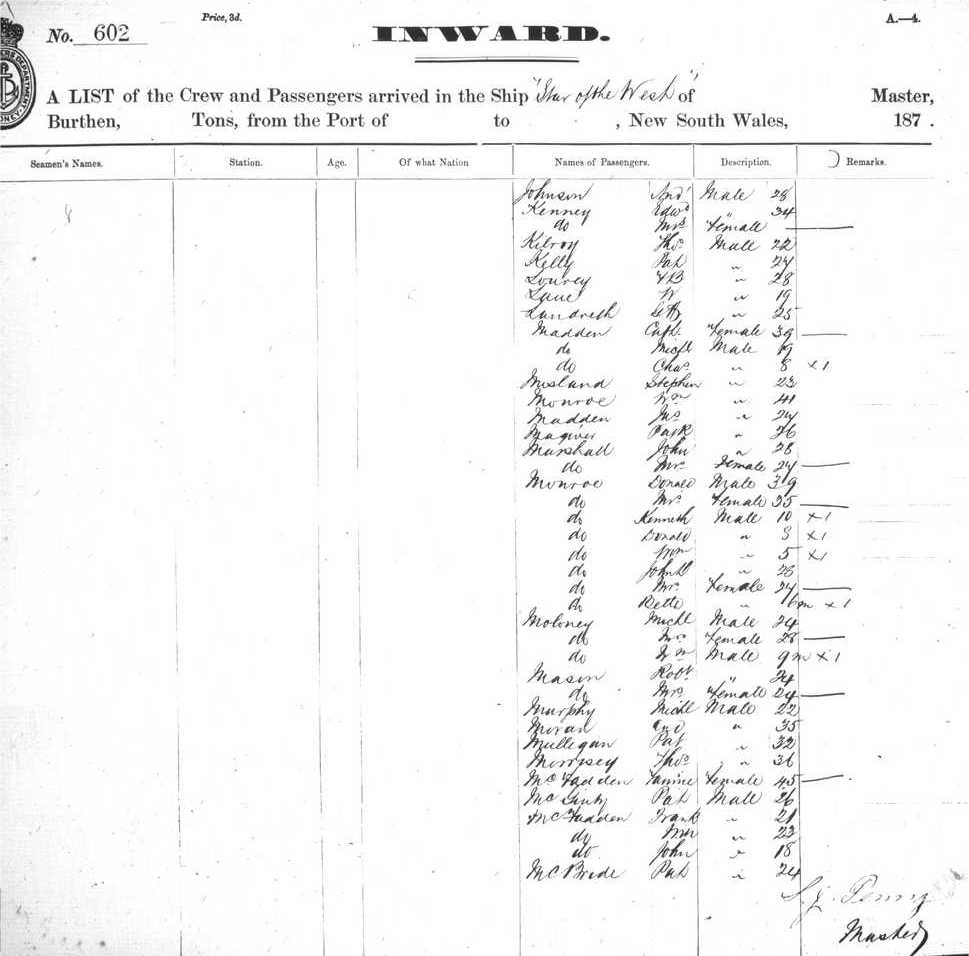 Price, 3d.
A.—4.
No. 602
INWARD.
A LIST of the Crew and Passengers arrived in the Ship "Star of the West" of Master,
Burthen, Tons, from the Port of to , New South Wales, 187 .
Seamen's Names. Station. Age. Of what Nation Names of Passengers. Description. Remarks.
Johnson And Male 28
Kenney Edwd " 34
do Mrs Female —
Kilroy Thos Male 22
Kelly Pat " 24
Lourey " 28
Lane W " 19
Landreth " 25
Madden Cath. Female 39 —
do Michl Male 19
do Chas " 8 x1
Stephen " 23
Monroe Wm " 41
Madden Jas " 24
Patk " 26
Marshall John " 28
do Mrs Female 24 —
Monroe Donald Male 39
do Mrs Female 35 —
do Kenneth Male 10 x1
do Donald " 8 x1
do Wm " 5 x1
do John " 28
do Mrs Female 24 —
do " 16m x1
Moloney Michl Male 24
do Mrs Female 28 —
do Wm Male 9m x1
Mason Robt " 24
do Mrs Female 24 —
Murphy Michl Male 22
Moran And " 35
Mulligan Pat " 32
Morrisey Thos " 36
McFadden Fannie Female 45 —
McGinty Pat Male 26
McFadden Frank " 21
do " 23
do John " 18
McBride Pat " 24
Penny
Master